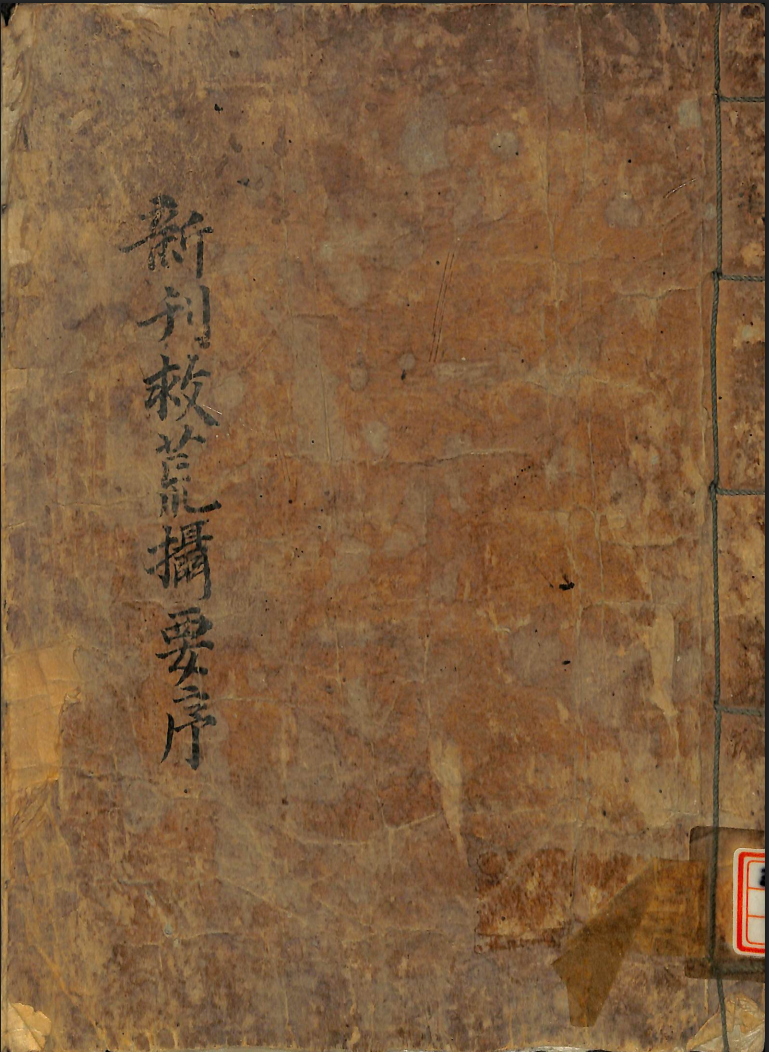 新刊救荒攝要序